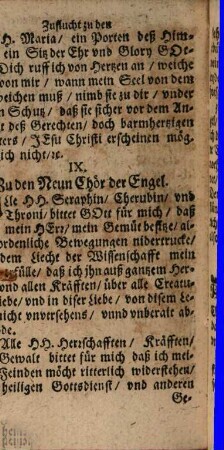 Zuflucht zu den
H. Maria/ ein Porten deß Him-
ein Sitz der Ehr vnd Glory GOt-
Dich ruff ich von Hertzen an/ weiche
von mir/ wann mein Seel von dem
weichen muß/ nimb sie zu dir/ vnder
n Schutz/ daß sie sicher vor dem An-
ht deß Gerechten/ doch barmhertzigen
ters/ JEsu Christi erscheinen mög-
ich nicht/ ꝛc.
IX.
Zu den Neun Chör der Engel.
Lle HH. Seraphin/ Cherubin/ vnd
Throni/ bittet GOtt für mich/ daß
mein HErr/ mein Gemüt besitze/ al-
ordenliche Bewegungen nidertrucke/
dem Liecht der Wissenschafft mein
fülle/ daß ich jhn auß gantzem Her-
vnd allen Kräfften/ über alle Creatu-
liebe/ vnd in diser Liebe/ von disem Le-
nicht vnversehens/ vnnd vnberait ab-
de.
Alle HH. Herrschafften/ Kräfften/
Gewalt bittet für mich daß ich mei-
Feinden möcht ritterlich widerstehen/
heiligen Gottsdienst/ vnd anderen
Ge-